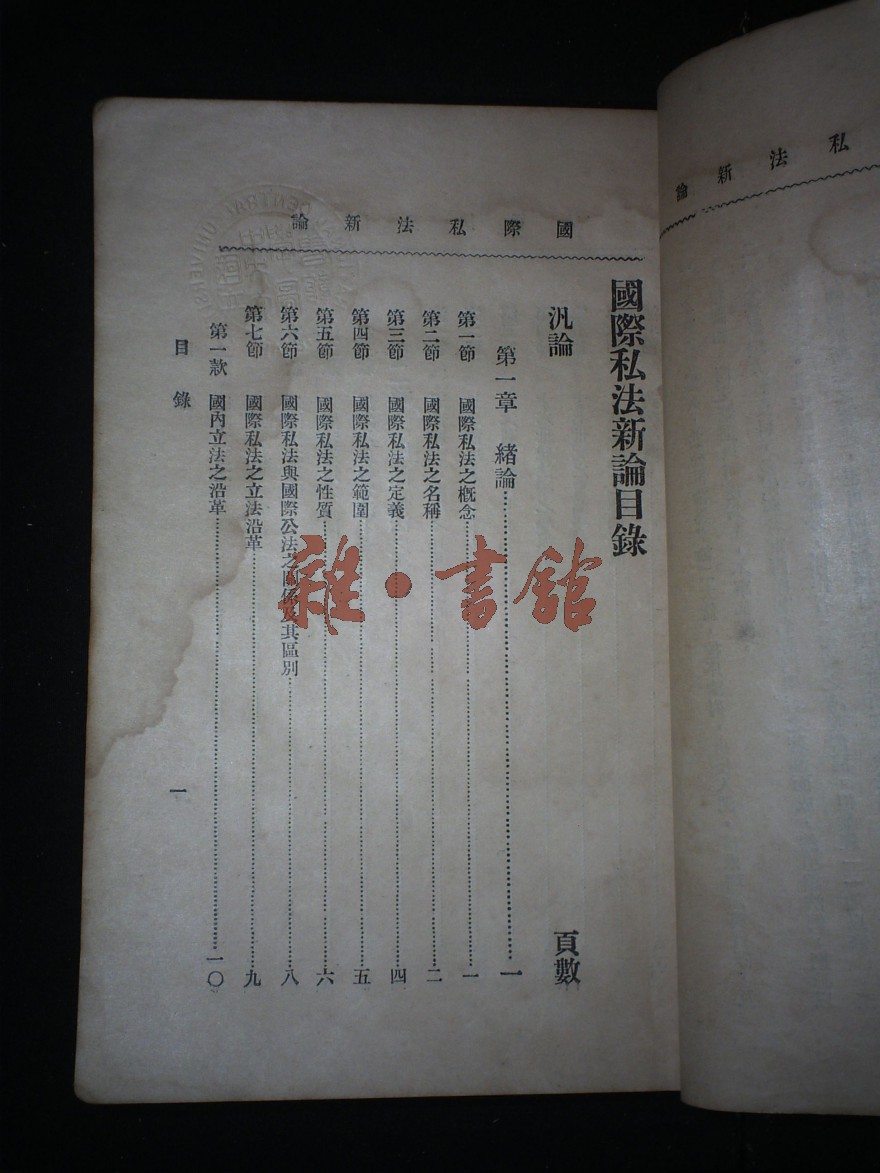 國際私法新論
國際私法新論目錄
汎論
頁數
第一章 緒論 一
第一節 國際私法之概念 一
第二節 國際私法之名稱 二
第三節 國際私法之定義 四
第四節 國際私法之範圍 五
第五節 國際私法之性質 六
第六節 國際私法與國際公法之關係及其區別 八
第七節 國際私法之立法沿革 九
第一款 國內立法之沿革 一〇
目錄
一
私法新論
雜·書館